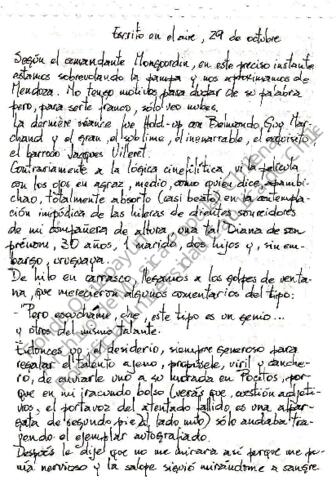 Escrito en el aire, 29 de octubre
Según el comandante Mongoordin, en este preciso instante
estamos sobrevolando la pampa y nos aproximamos de
Mendoza. No tengo motivos para dudar de su palabra
pero, para serte franco, sólo veo nubes.
La dernière séance fue Hold-up con Belmondo, Guy Mar-
chand y el gran, el sublime, el inenarrable, el exquisito
el barroco Jacques Villeret.
Contrariamente a la lógica cinefilítica, vi la película
con los ojos en agraz, medio, como quien dice, apambi-
chao, totalmente absorto (casi beato) en la contempla-
ción impúdica de las hileras de dientes sonreidores
de mi compañera de altura, una tal Diana de son
prénom, 30 años, 1 marido, dos hijos y, sin em-
bargo, uruguaya.
De hilo en carrasco, llegamos a los golpes de venta-
na, que merecieron algunos comentarios del tipo:
"Pero escuchame, che, este tipo es un genio..."
y otros del mismo talante.
Entonces yo, el desiderio, siempre generoso para
regalar el talento ajeno, propúsele, viril y canche-
ro, de enviarle uno a su morada en Pocitos, por-
que en mi iracundo bolso (verás que, cuestión adjeti-
vos, el portavoz del atentado fallido es una alpar-
gata de segundo pie al lado mío) sólo andaba tra-
yendo el ejemplar autografiado.
Después le dije que no me mirara así porque me po-
nía nervioso y la salope siguió mirándome a sangre